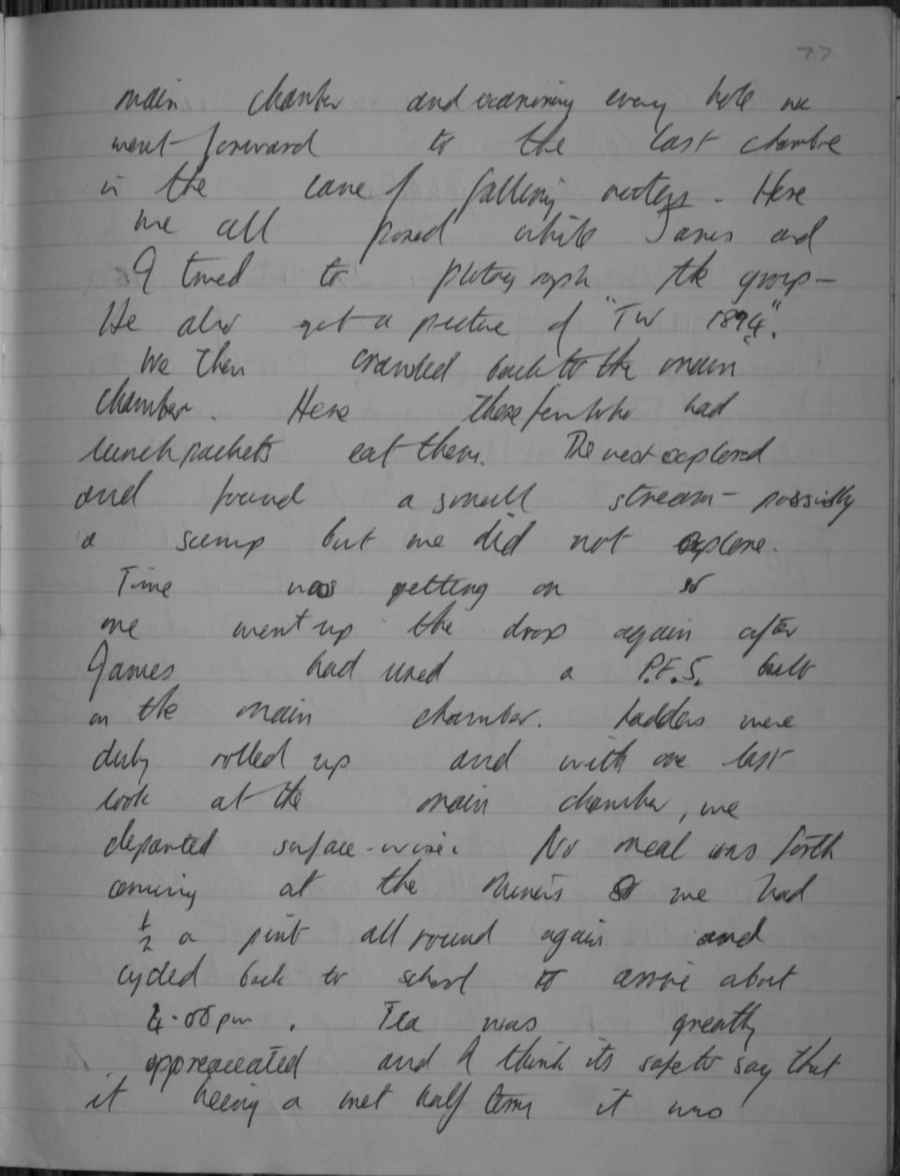 77
main chamber and examining every hole we
went forward to the last chambre
in the cave of falling waters. Here
we all posed while James and
I timed to photograph the group -
He also got a picture of "TW 1894".
We then crawled back to the main
chamber. Here those few who had
lunch packets eat them. We next explored
and found a small stream - possibly
a sump but we did not explore.
Time was getting on so
we went up the drop again after
James had used a P.F.5. bulb
in the main chamber. Ladders were
duly rolled up and with one last
look at the main chamber, we
departed surface-wise. No meal was forth
coming at the so we had
½ a pint all round again and
cycled back to school to arrive about
4.00 pm. Tea was greatly
appreaceated and I think its safe to say that
it being a wet half term it was